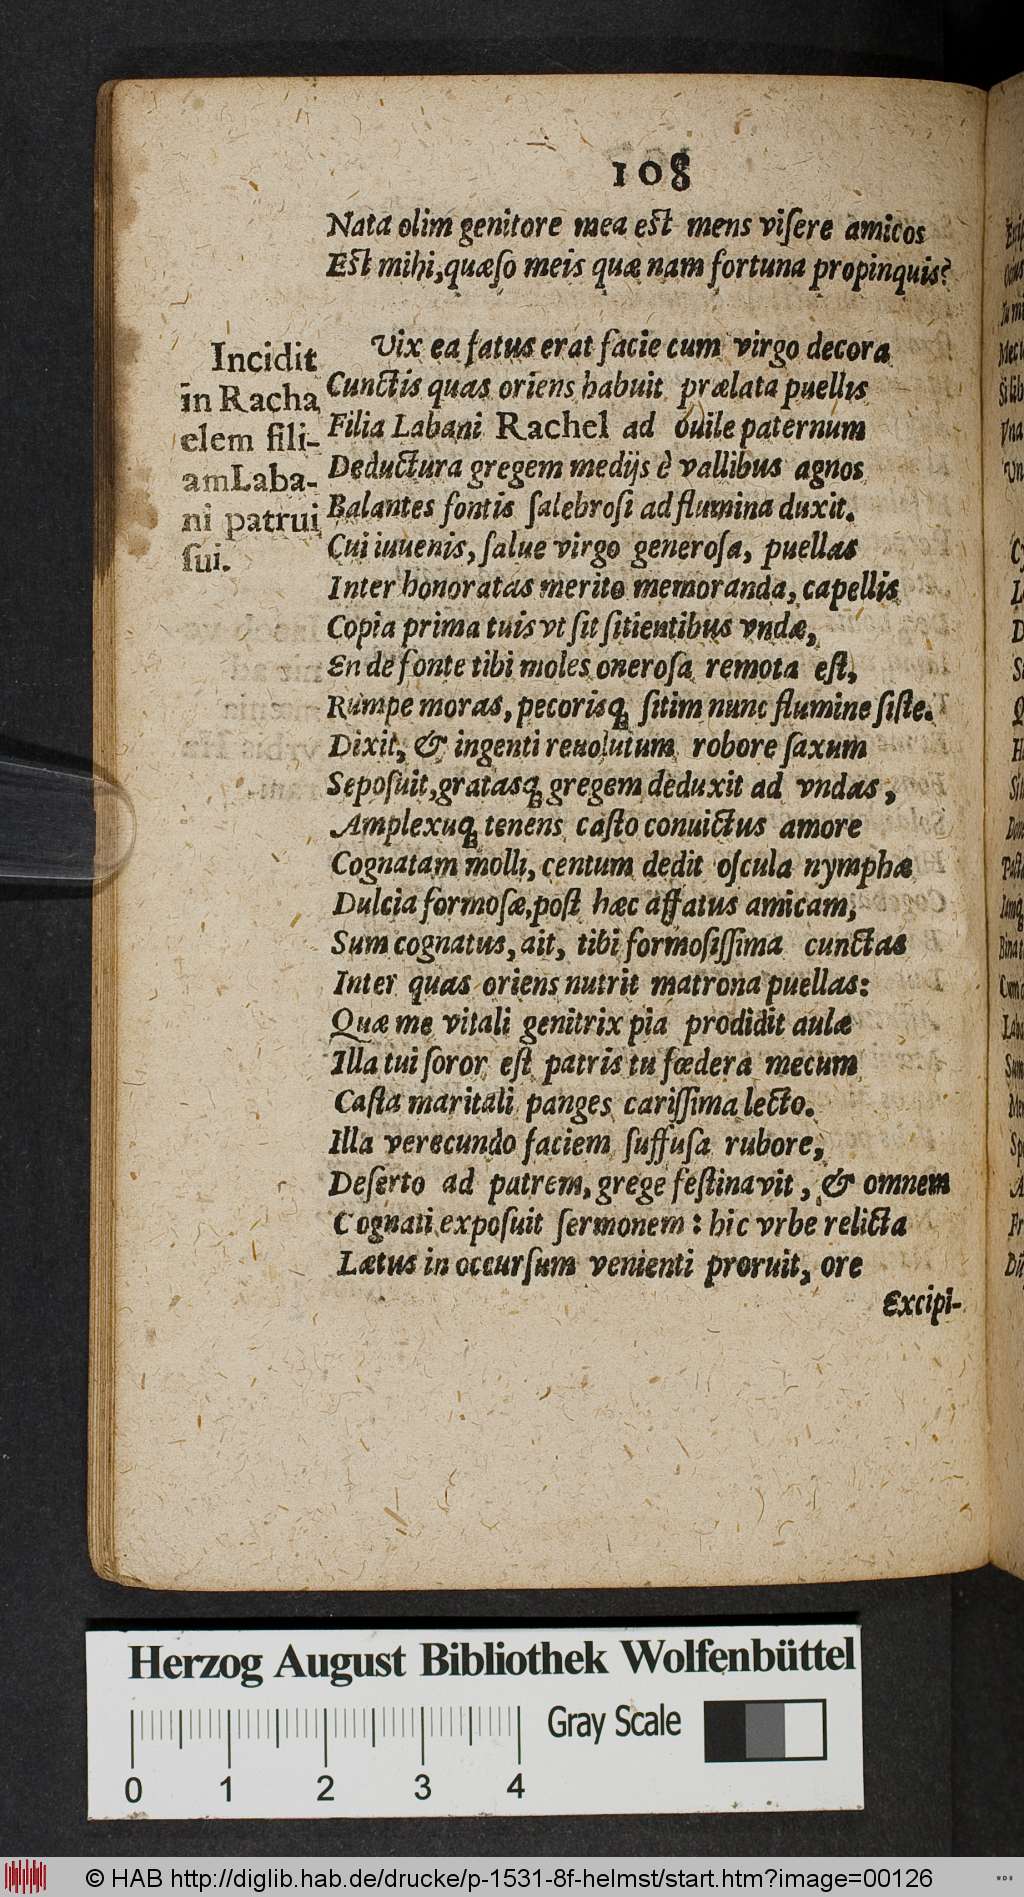 108
Nata olim genitore mea est mens viſere amicos
Est mihi, quæſo meis quæ nam fortuna propinquis?
Incidit
in Racha
elem fili-
am Laba-
ni patrui
ſui.
Vix ea fatus erat facie cum virgo decora
Cunctis quas oriens habuit prælata puellis
Filia Labani Rachel ad ouile paternum
Deductura gregem medijs è vallibus agnos
Balantes fontis ſalebroſi ad flumina duxit.
Cui iuuenis, ſalue virgo generoſa, puellas
Inter honoratas merito memoranda, capellis
Copia prima tuis vt ſit ſitientibus vndæ,
En de fonte tibi moles oneroſa remota eſt,
Rumpe moras, pecorisq́ ſitim nunc flumine ſiſte.
Dixit, & ingenti reuolutum robore ſaxum
Sepoſuit, gratasq́ gregem deduxit ad vndas,
Amplexuq́ tenens caſto conuictus amore
Cognatam molli, centum dedit oſcula nymphæ
Dulcia formoſæ, poſt hæc affatus amicam,
Sum cognatus, ait, tibi formoſiſſima cunctas
Inter quas oriens nutrit matrona puellas:
Quæ me vitali genitrix pia prodidit aulæ
Illa tui ſoror eſt patris tu fœdera mecum
Caſta maritali panges cariſſima lecto.
Illa verecundo faciem ſuffuſa rubore,
Deſerto ad patrem, grege feſtinavit, & omnem
Cognati expoſuit ſermonem: hic vrbe relicta
Lætus in occurſum venienti proruit, ore
Excipi-
Herzog August Bibliothek Wolfenbüttel
Gray Scale
0 1 2 3 4
© HAB http://diglib.hab.de/drucke/p-1531-8f-helmst/start.htm?image=00126